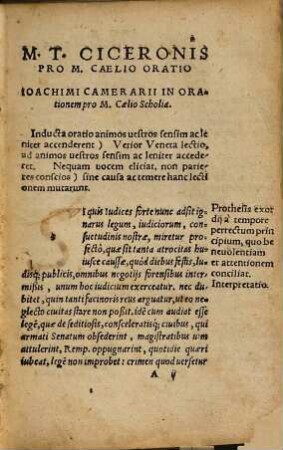 M. T. CICERONIS
PRO M. CAELIO ORATIO
IOACHIMI CAMERARII IN ORA-
tionem pro M. Cælio Scholia.
Inducta oratio animos uestros sensim ac le
niter accenderent) Verior Veneta lectio,
ad animos uestros sensim ac leniter accede-
ret. Nequam uocem eliciat, non parie-
tes conscios) sine causa ac temere hanc lecti
onem mutarunt.
SI quis Iudices forte nunc adsit ig-
narus legum, iudiciorum, con-
suetudinis nostræ, miretur profe-
ctò, quæ sit tanta atrocitas hu-
iusce causæ, quòd diebus festis, lu-
disq; publicis, omnibus negotijs forensibus inter
missis, unum hoc iudicium exerceatur. nec du-
bitet, quin tanti facinoris reus arguatur, ut eo ne-
glecto ciuitas stare non possit. idē cum audiat esse
legē, quæ de seditiosis, consceleratisq; ciuibus, qui
armati Senatum obsederint, magistratibus uim
attulerint, Remp. oppugnarint, quotidie quæri
iubeat, legē non improbet: crimen quod uersetur
Prothesis exor
dij a tempore
perrectum prin
cipium, quo be
neuolentiam
et attentionem
conciliat.
Interpretatio.
A